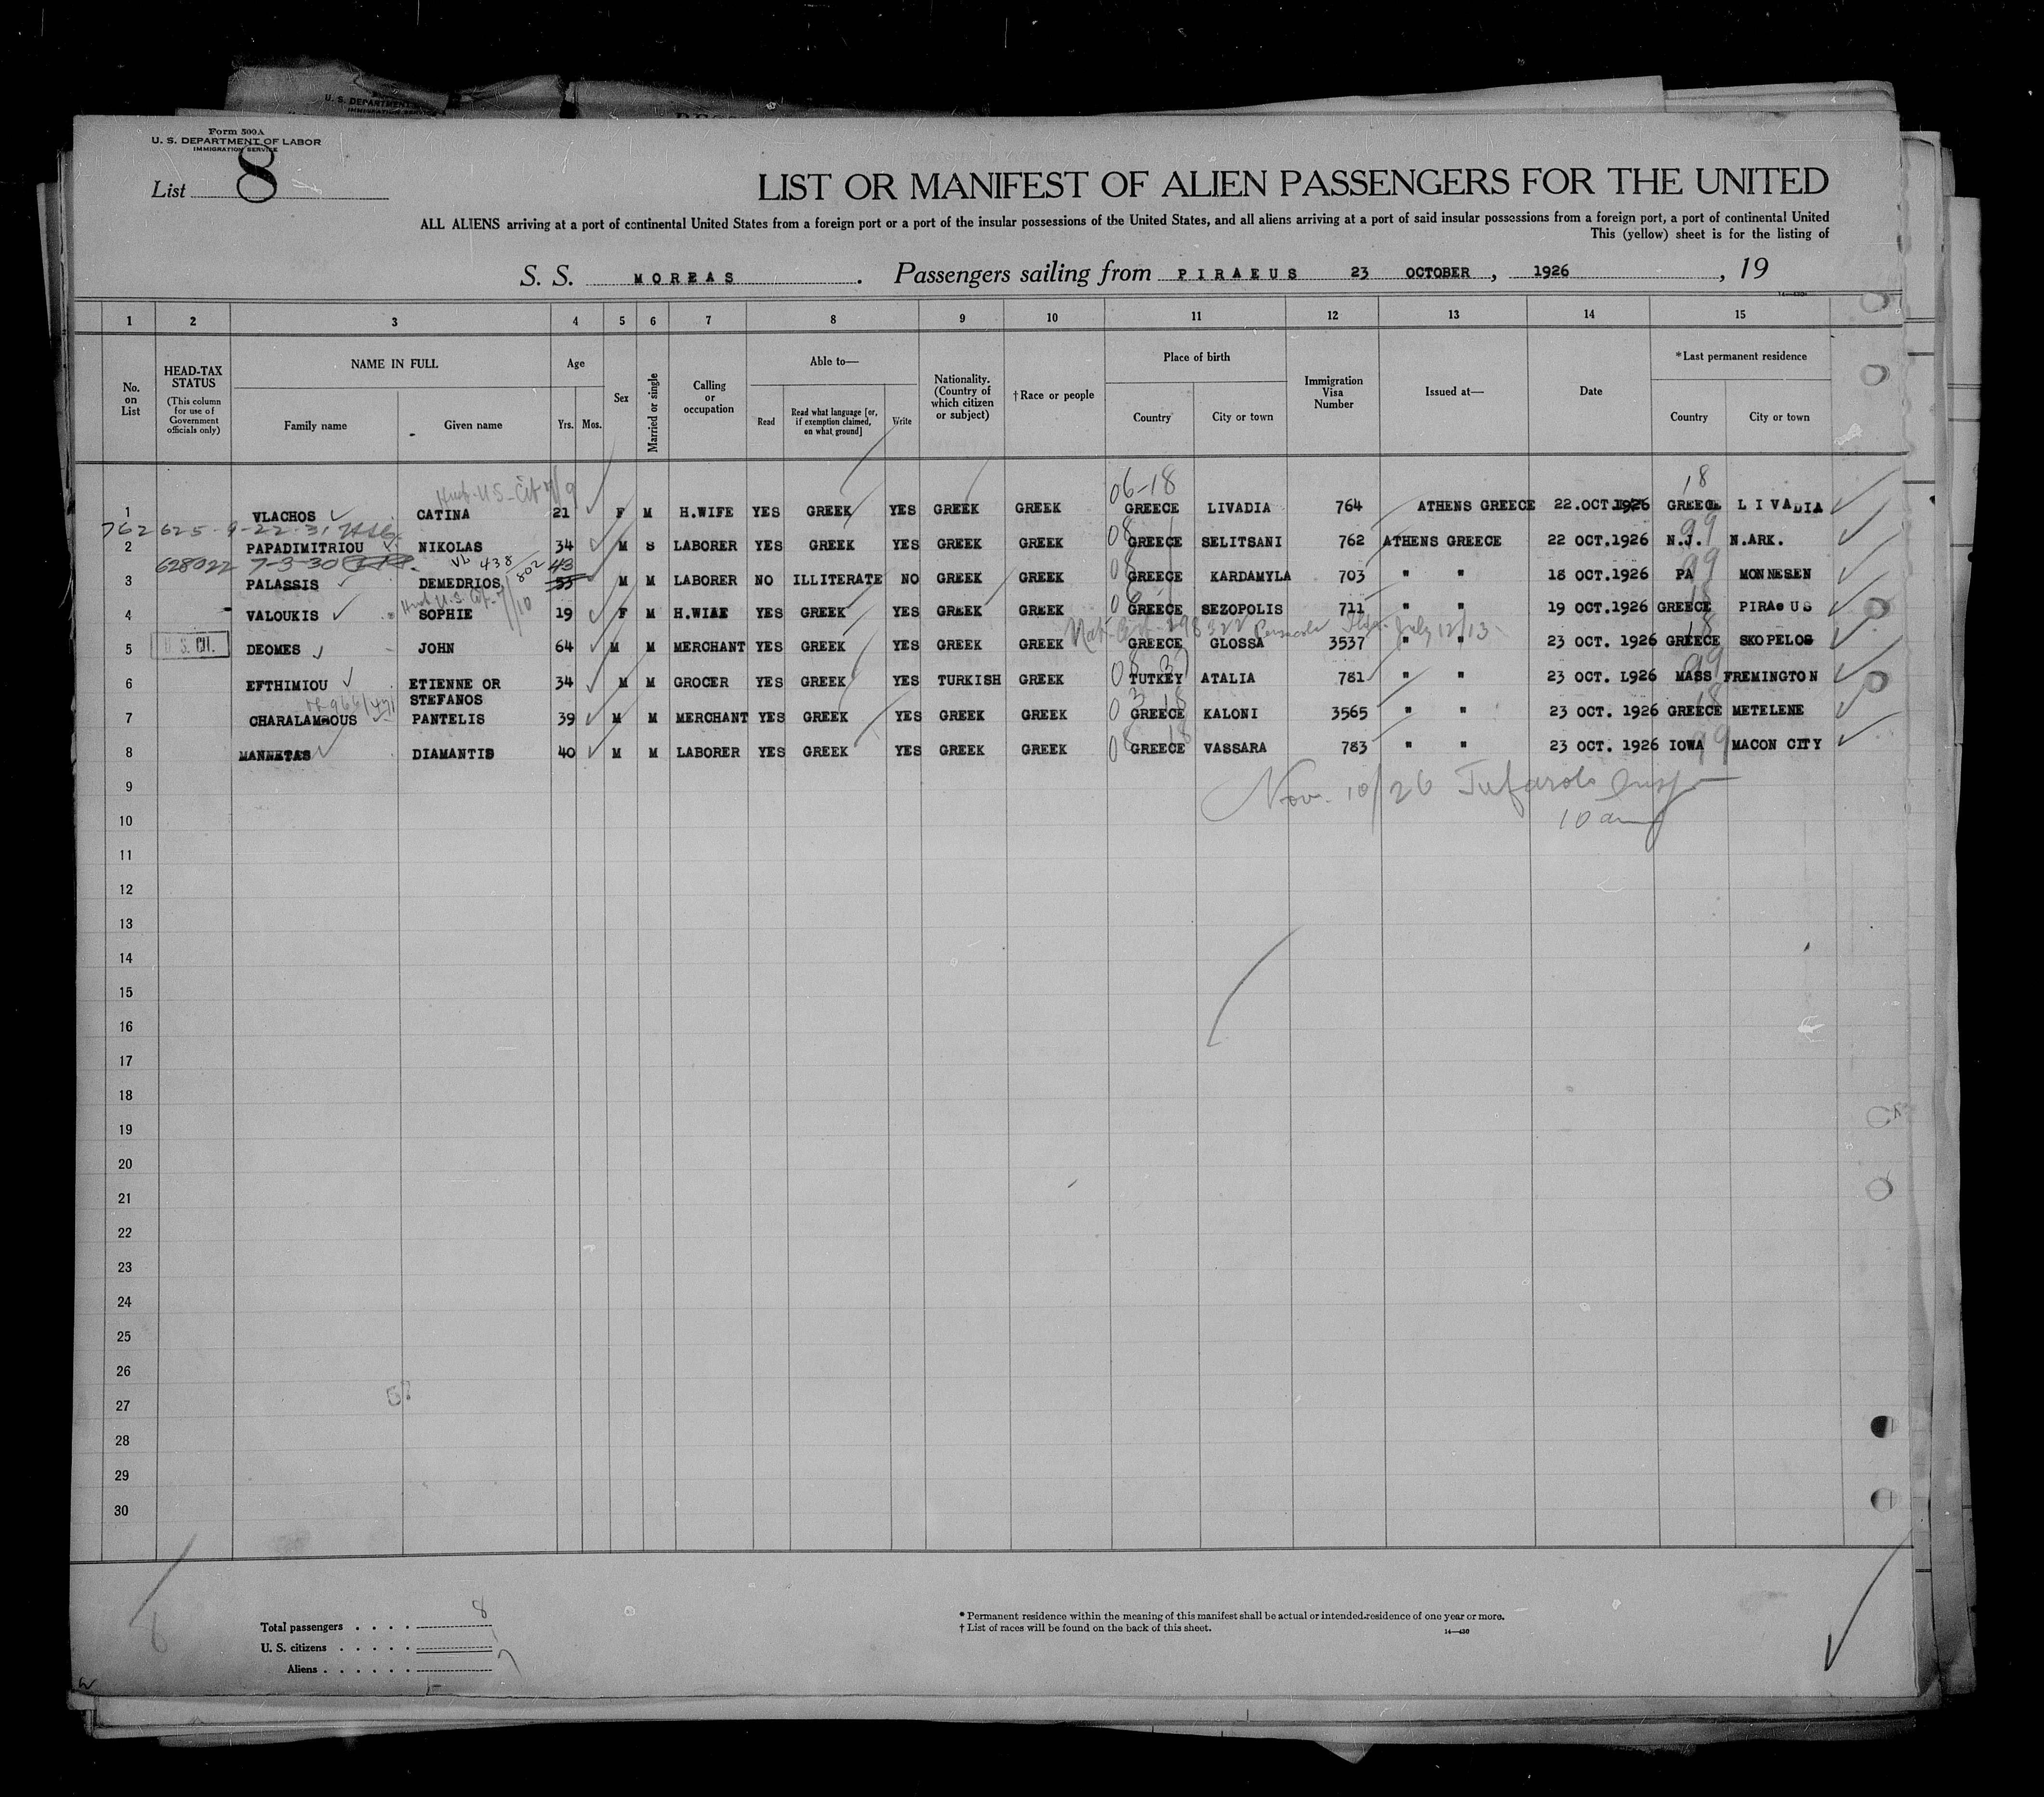 U. S. DEPARTMENT
IMMIGRATION SERVICE
Form 500A
U. S. DEPARTMENT OF LABOR
IMMIGRATION SERVICE
List 8
LIST OR MANIFEST OF ALIEN PASSENGERS FOR THE UNITED
ALL ALIENS arriving at a port of continental United States from a foreign port or a port of the insular possessions of the United States, and all aliens arriving at a port of said insular possessions from a foreign port, a port of continental United
This (yellow) sheet is for the listing of
S. S. MOREAS. Passengers sailing from PIRAEUS 23 OCTOBER, 1926, 19
1 2 3 4 5 6 7 8 9 10 11 12 13 14 15
No. on List
HEAD-TAX STATUS (This column for use of Government officials only)
NAME IN FULL Family name Given name
Age Yrs. Mos.
Sex
Married or single
Calling or occupation
Able to— Read Read what language [or, if exemption claimed, on what ground] Write
Nationality. (Country of which citizen or subject)
†Race or people
Place of birth Country City or town
Immigration Visa Number
Issued at—
Date
*Last permanent residence Country City or town
Husb-U.S-Cit 06-18 18
1 VLACHOS CATINA 21 F M H.WIFE YES GREEK YES GREEK GREEK GREECE LIVADIA 764 ATHENS GREECE 22.OCT.1926 GREECE LIVADIA
762625-9-22-31 08 99
2 PAPADIMITRIOU NIKOLAS 34 M S LABORER YES GREEK YES GREEK GREEK GREECE SELITSANI 762 ATHENS GREECE 22 OCT.1926 N.J. N.ARK.
628022 7-3-30 VL 438/802 43 99
3 PALASSIS DEMEDRIOS 53 M M LABORER NO ILLITERATE NO GREEK GREEK GREECE KARDAMYLA 703 " " 18 OCT.1926 PA MONNESEN
Husb U.S. Cit-7/10 18
4 VALOUKIS SOPHIE 19 F M H.WIAE YES GREEK YES GREEK GREEK GREECE SEZOPOLIS 711 " " 19 OCT.1926 GREECE PIRAeUS
U.S. CIT. Pensacola Fla. July 12/13 18
5 DEOMES JOHN 64 M M MERCHANT YES GREEK YES GREEK GREEK GREECE GLOSSA 3537 " " 23 OCT. 1926 GREECE SKOPELOS
08 37 99
6 EFTHIMIOU ETIENNE OR STEFANOS 34 M M GROCER YES GREEK YES TURKISH GREEK TUTKEY ATALIA 781 " " 23 OCT. L926 MASS FREMINGTON
18
7 CHARALAMBOUS PANTELIS 39 M M MERCHANT YES GREEK YES GREEK GREEK GREECE KALONI 3565 " " 23 OCT. 1926 GREECE METELENE
08 18 99
8 MANNETAS DIAMANTIS 40 M M LABORER YES GREEK YES GREEK GREEK GREECE VASSARA 783 " " 23 OCT. 1926 IOWA MACON CITY
9 Nov. 10/26 Insp
10 10 am
11
12
13
14
15
16
17
18
19
20
21
22
23
24
25
26
27
28
29
30
Total passengers . . . . 8
U. S. citizens . . . . . 1
Aliens . . . . . . 7
* Permanent residence within the meaning of this manifest shall be actual or intended residence of one year or more.
† List of races will be found on the back of this sheet.
14—430